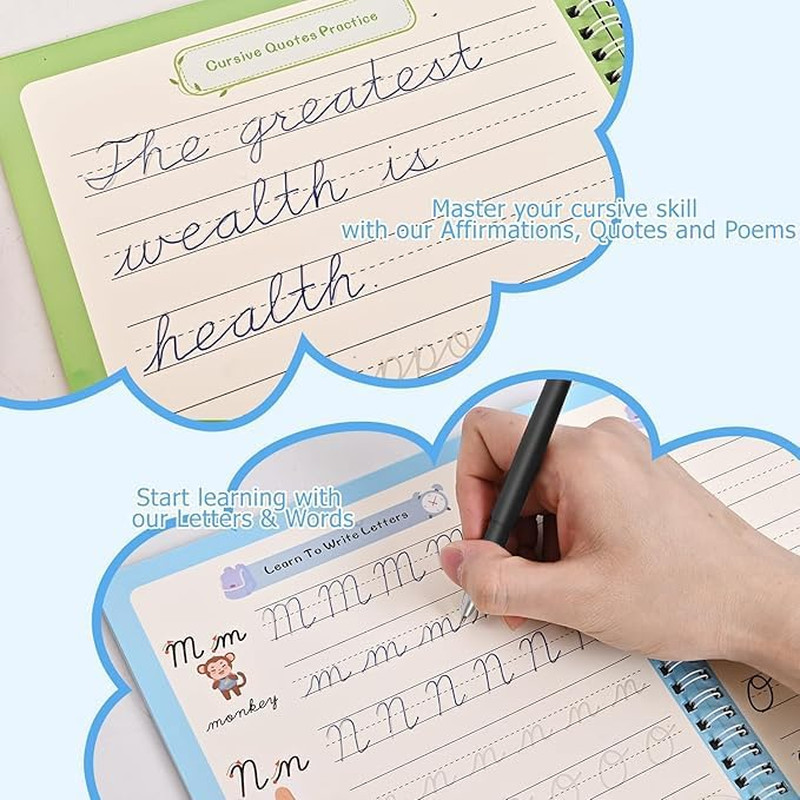 Cursive Quotes Practice
The greatest
wealth is
health.
Master your cursive skill
with our Affirmations, Quotes and Poems
Start learning with
our Letters & Words
Learn To Write Letters
M m
monkey
M M M M
m m m
N N N N N
n n n n
N n
O O O